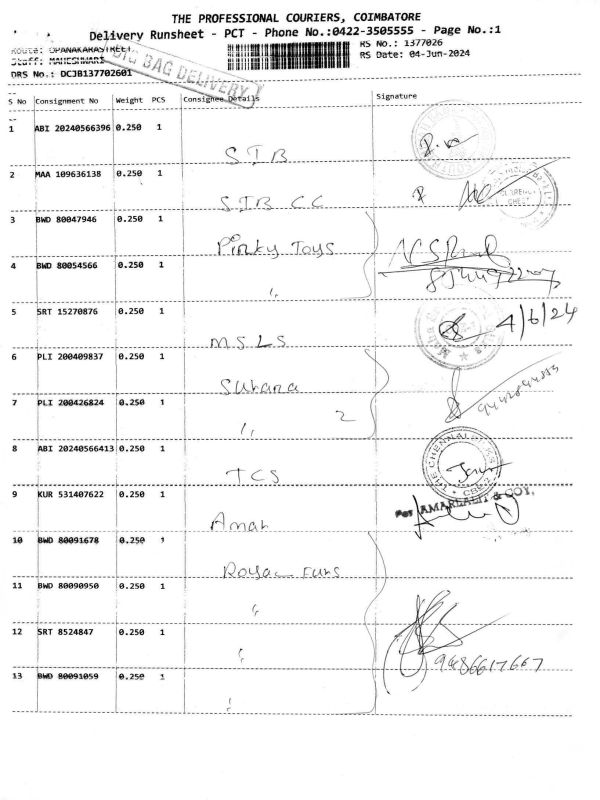 THE PROFESSIONAL COURIERS, COIMBATORE
Delivery Runsheet - PCT - Phone No.:0422-3505555 - Page No.:1
Route: OPANAKARASTREET
RS No.: 1377026
Staff: MAHESHWARI
RS Date: 04-Jun-2024
DRS No.: DCJB137702601
BIG BAG DELIVERY
S No Consignment No Weight PCS Consignee Details Signature
1 ABI 20240566396 0.250 1
STB
2 MAA 109636138 0.250 1
STB CC
3 BWD 80047946 0.250 1
Pinky Toys
4 BWD 80054566 0.250 1
"
5 SRT 15270876 0.250 1
MSLS
4/6/24
6 PLI 200409837 0.250 1
Suhana
7 PLI 200426824 0.250 1
" 2
8 ABI 20240566413 0.250 1
TCS
THE CHENNAI
CBE-2
9 KUR 531407622 0.250 1
Aman
For AMARLALJI & COY,
10 BWD 80091678 0.250 1
Royal Funs
11 BWD 80090950 0.250 1
"
12 SRT 8524847 0.250 1
"
9486617667
13 BWD 80091059 0.250 1
"